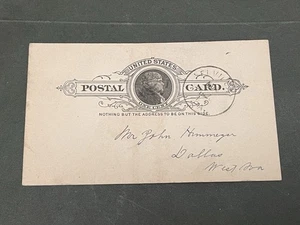 UNITED STATES
POSTAL CARD.
ONE CENT
NOTHING BUT THE ADDRESS TO BE ON THIS SIDE.
Mr John
Dallas
West Va